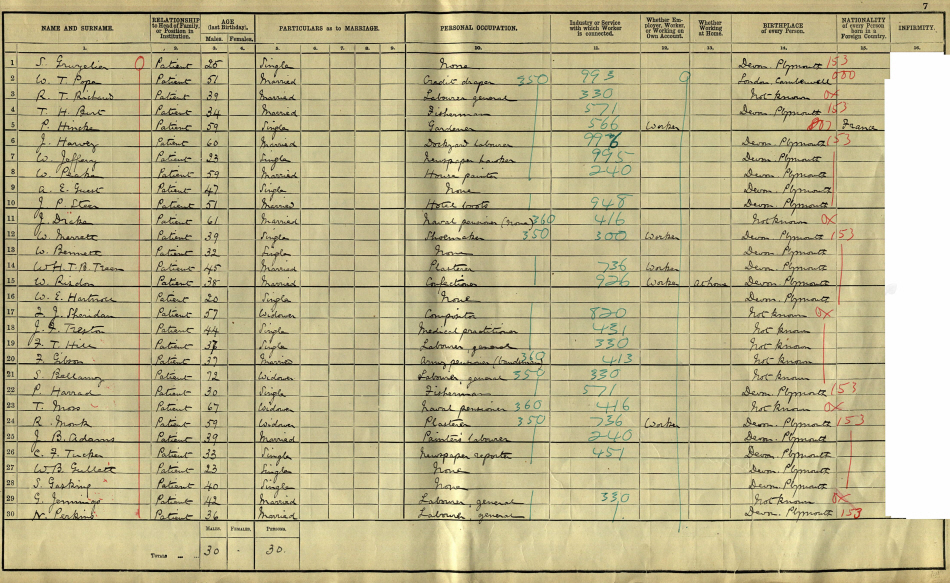 7
NAME AND SURNAME. RELATIONSHIP to Head of Family, or Position in Institution. AGE (last Birthday). PARTICULARS as to MARRIAGE. PERSONAL OCCUPATION. Industry or Service with which Worker is connected. Whether Employer, Worker, or Working on Own Account. Whether Working at Home. BIRTHPLACE of every Person. NATIONALITY of every Person born in a Foreign Country. INFIRMITY.
Males. Females.
1. 2. 3. 4. 5. 6. 7. 8. 9. 10. 11. 12. 13. 14. 15. 16.
1 S. Patient 25 Single None Devon. Plymouth 153
2 W. T. Pope Patient 51 Married Credit draper 350 993 9 London. Camberwell 000
3 R. T. Richard Patient 39 Married Labourer general 330 Not known OX
4 T. H. Burt Patient 34 Married Fisherman 571 Devon. Plymouth 153
5 P. Patient 59 Single Gardener 566 Worker 807 France
6 J. Harvey Patient 60 Married Dockyard labourer 997 Devon. Plymouth 153
7 W. Jeffery Patient 33 Single Newspaper hawker 995 Devon. Plymouth
8 W. Patient 59 Married House painter 240 Devon. Plymouth
9 A. E. Guest Patient 47 Single None Devon. Plymouth
10 J. P. Steer Patient 51 Married Hotel boots 948 Devon. Plymouth
11 J. Drake Patient 61 Married Naval pensioner (None) 360 416 Not known OX
12 W. Merrett Patient 39 Single Shoemaker 350 300 Worker Devon. Plymouth 153
13 W. Bennett Patient 32 Single None Devon. Plymouth
14 W. H. T. B. Patient 45 Married Plasterer 736 Worker Devon. Plymouth
15 W. Risdon Patient 38 Married Confectioner 926 Worker at home Devon. Plymouth
16 W. E. Patient 20 Single None Devon. Plymouth
17 J. Sheridan Patient 57 Widower Compositor 820 Not known OX
18 J. Patient 44 Single Medical practitioner 431 Not known
19 F. T. Hill Patient 37 Single Labourer, general 330 Not known
20 F. Gibson Patient 37 Married Army pensioner 360 413 Not known
21 S. Bellamy Patient 72 Widower Labourer, general 350 330 Not known
22 P. Harrad Patient 30 Single Fisherman 571 Devon. Plymouth 153
23 T. Moss Patient 67 Widower Naval pensioner 360 416 Not known OX
24 R. Monk Patient 59 Widower Plasterer 350 736 Worker Devon. Plymouth 153
25 J. B. Adams Patient 39 Married Painters labourer 240 Devon. Plymouth
26 C. F. Tucker Patient 33 Single Newspaper reporter 451 Devon. Plymouth
27 W. B. Gullett Patient 23 Single None Devon. Plymouth
28 S. Gosking Patient 40 Single None Devon. Plymouth
29 G. Jennings Patient 42 Married Labourer, general 330 Not known OX
30 N. Perkins Patient 36 Married Labourer, general Devon. Plymouth 153
MALES. FEMALES. PERSONS.
TOTALS 30 30